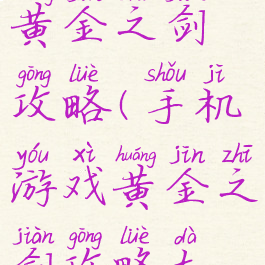 黄金之剑
gōng lüè shǒu jī
攻略(手机
yóu xì huáng jīn zhī
游戏黄金之
jiàn gōng lüè dà
剑攻略大